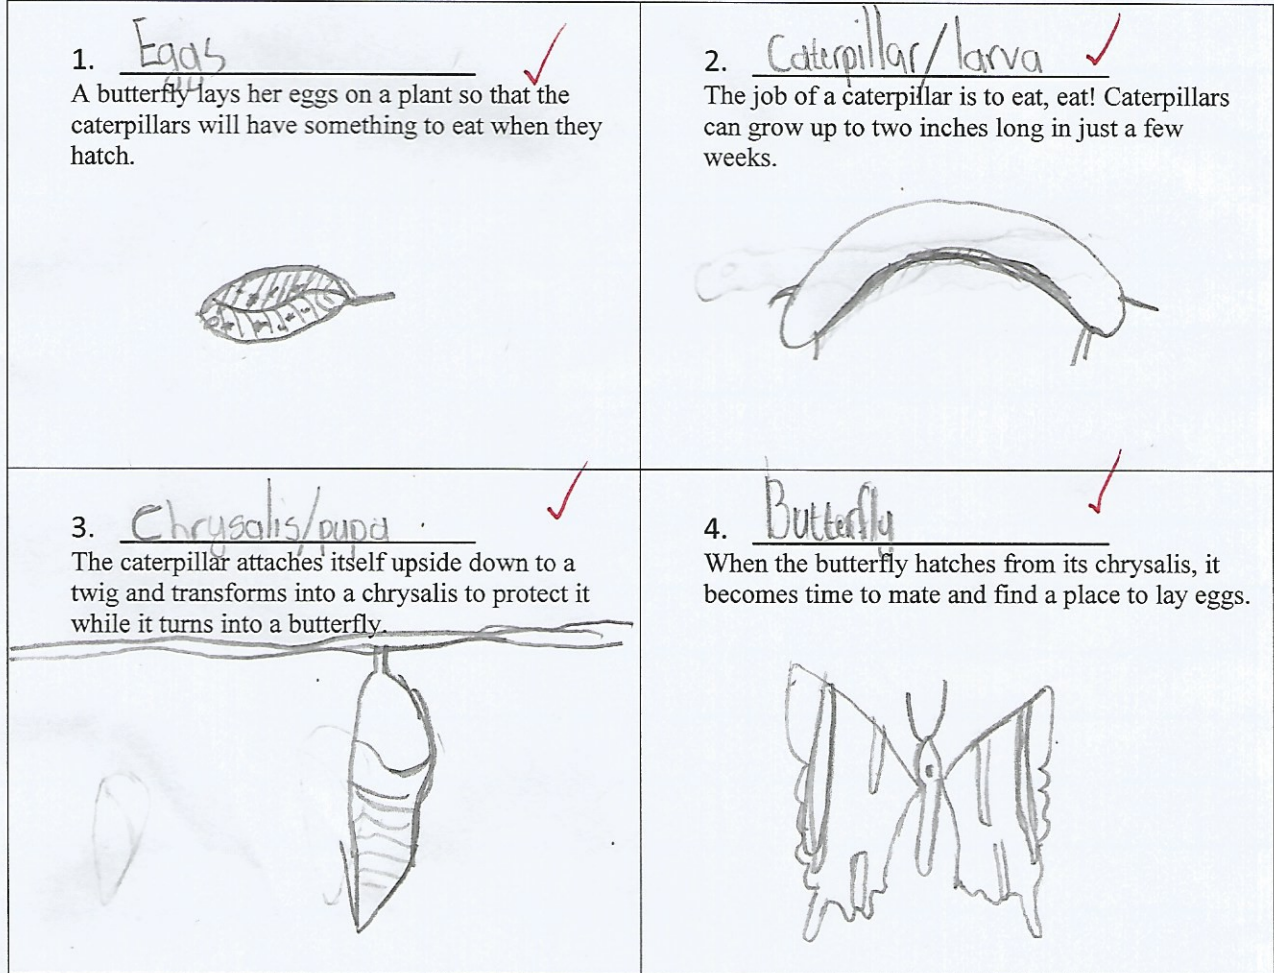 1. Eggs
A butterfly lays her eggs on a plant so that the
caterpillars will have something to eat when they
hatch.
2. Caterpillar/larva
The job of a caterpillar is to eat, eat! Caterpillars
can grow up to two inches long in just a few
weeks.
3. Chrysalis/pupa
The caterpillar attaches itself upside down to a
twig and transforms into a chrysalis to protect it
while it turns into a butterfly.
4. Butterfly
When the butterfly hatches from its chrysalis, it
becomes time to mate and find a place to lay eggs.